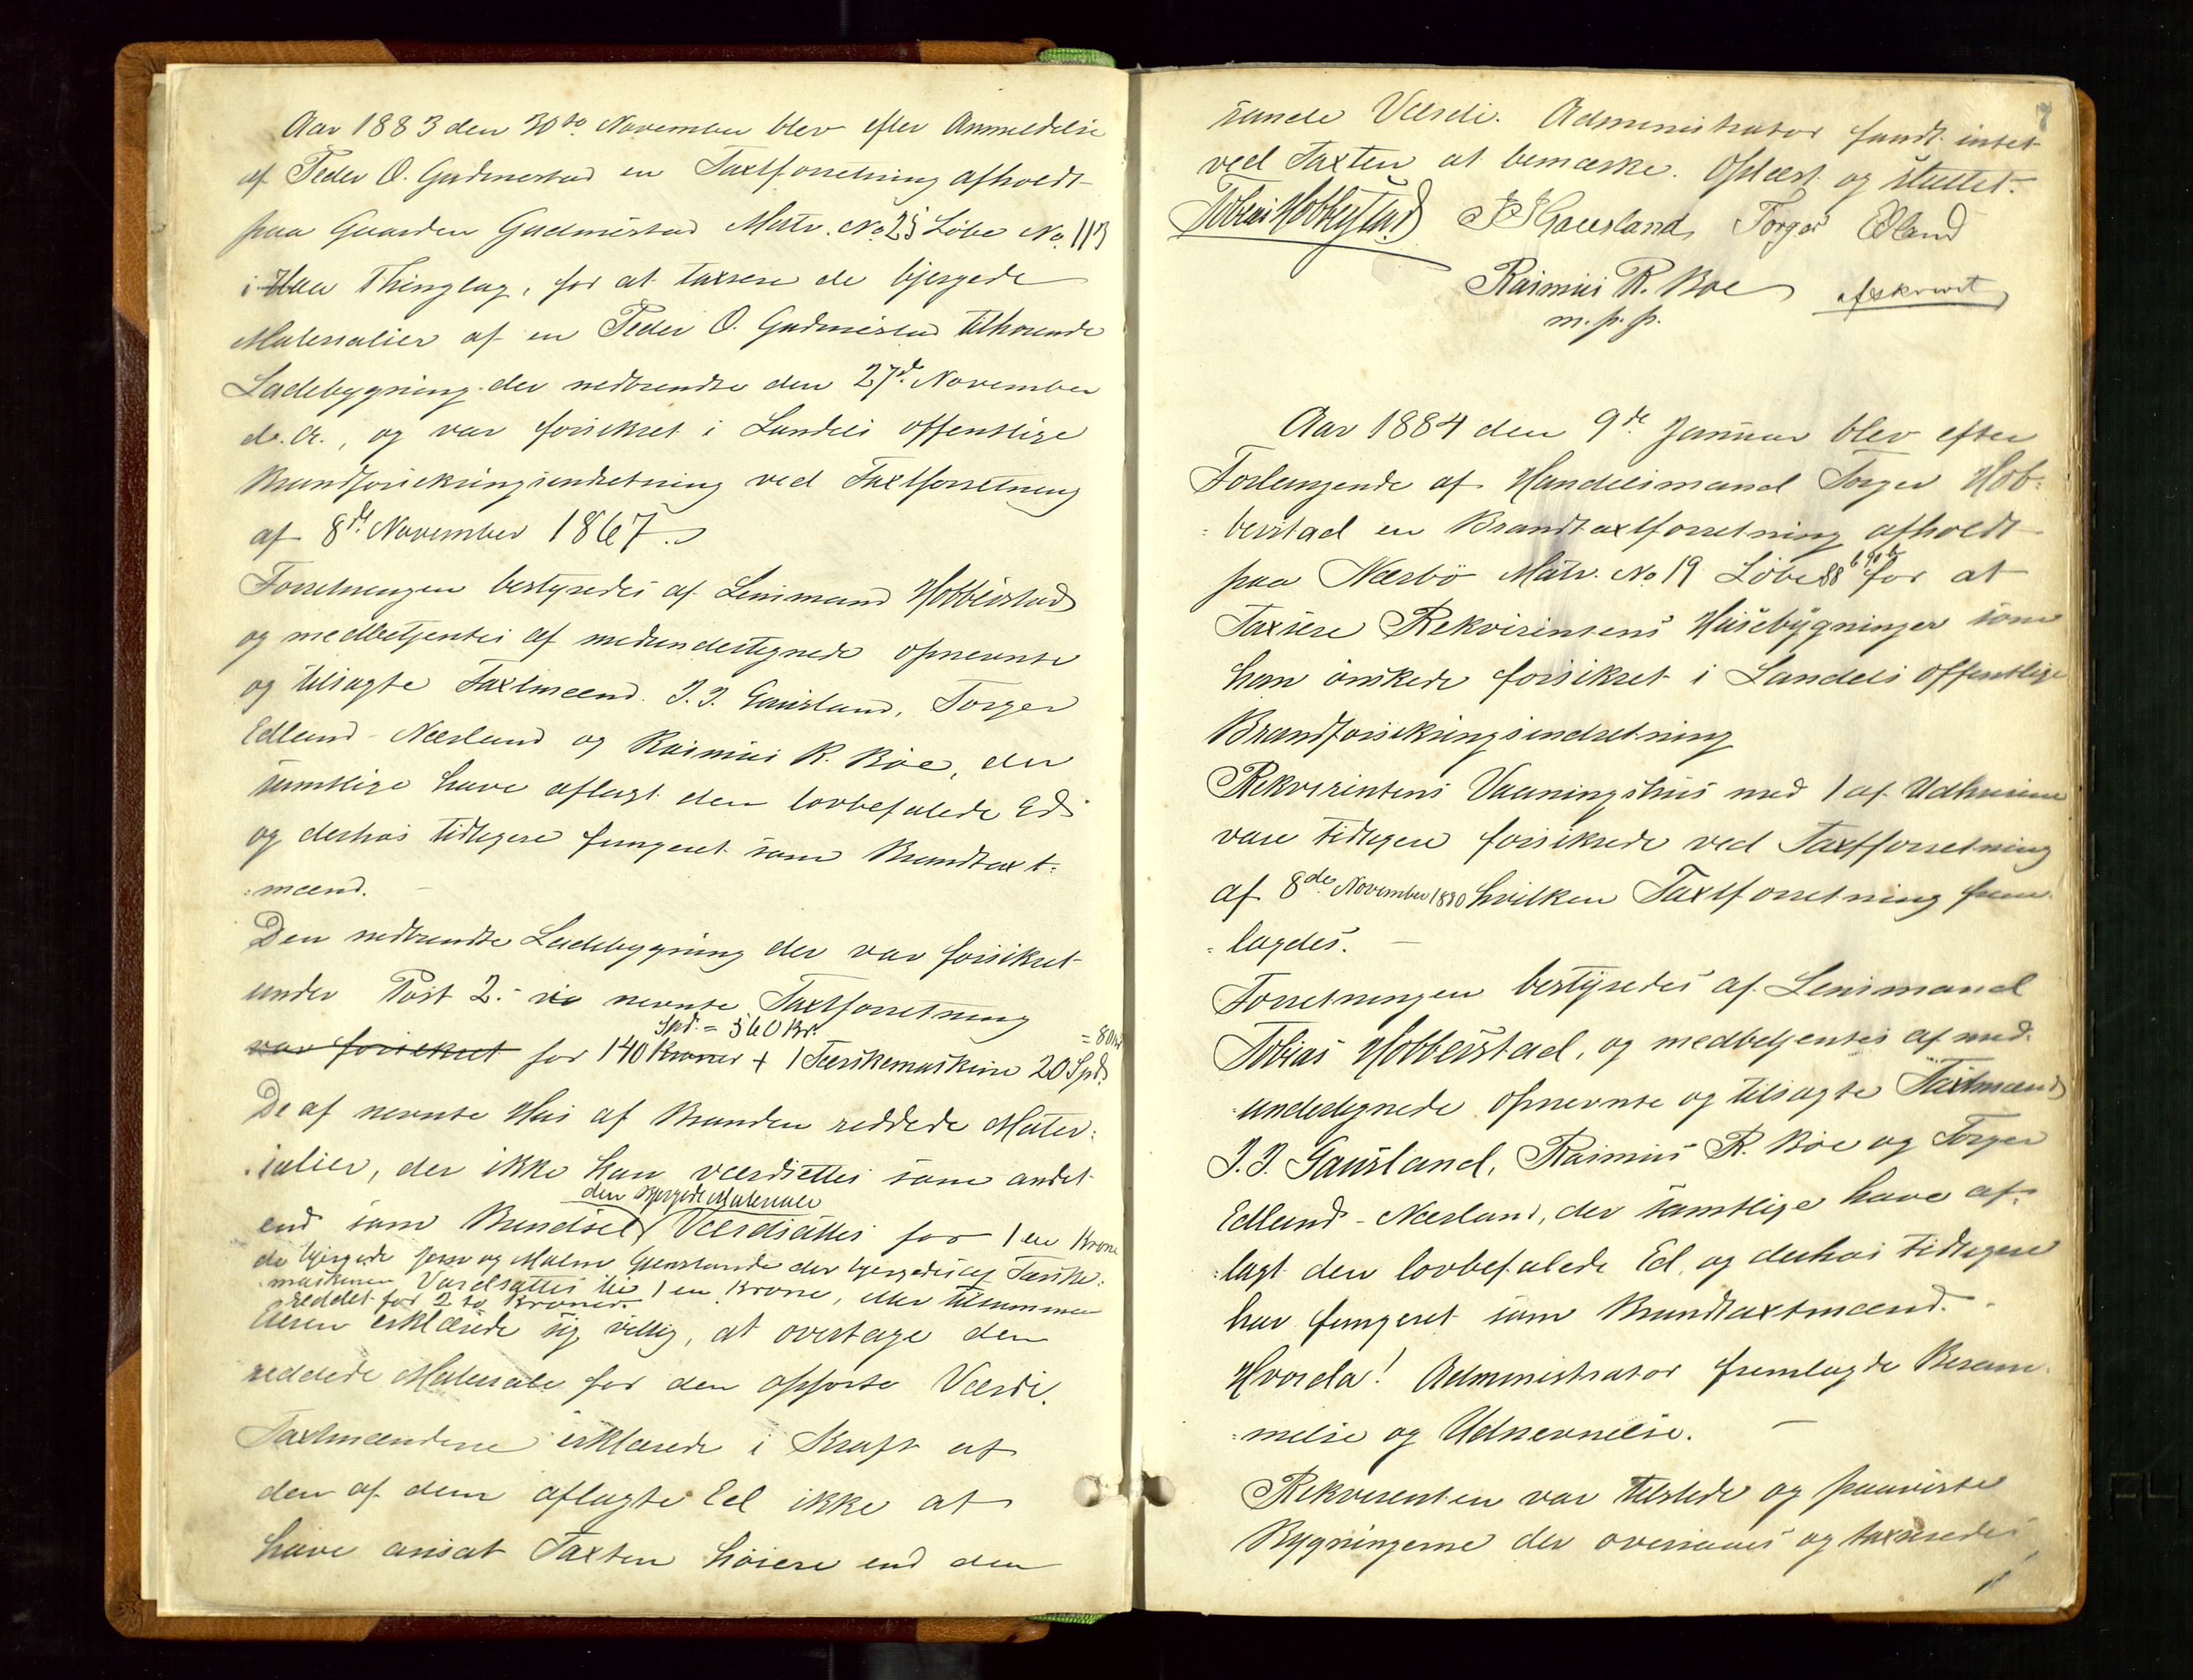 Aar 1883 den 30te November blev efter Anmeldelse
af Peder O. Gudmestad en Taxtforretning afholdt
paa Gaarden Gudmestad Matr. No 25 Löbe No. 113
i Haa Thinglag, for at taxsere de bjergede
Materialier af en Peder O. Gudmestad tilhørende
Ladebygning der nedbrendte den 27de November
d. A., og var forsikret i Landets offentlige
Brandforsikringsindretning ved Taxtforretning
af 8de November 1867.
Forretningen bestyredes af Lensmand Hobberstad
og medbetjentes af medundertegnede opnevnte
og tilsagte Taxtmænd J. J. Gausland, Torger
Edland-Nærland og Rasmus R. Böe, der
samtlige have aflagt den lovbefalede Ed
og derhos tidligere fungeret som Brandtaxt=
=mænd.
Den nedbrendte Ladebygning der var forsikret
under Post 2. nevnte Taxtforretning
Spd. = 560 Kr. = 80 Kr
var forsikret for 140 Kroner + 1 Tærskemaskine 20 Spd.
De af nevnte Hus af Branden reddede Mater=
=ialier, der ikke kan værdsettes som andet
den bjergede Materiale
end som Brendsel Værdsattes for 1 en Krone
de bjergede Jern og Malm Gjenstande der bjergedes af Tærske=
=maskinen Værdsattes til 1 en Krone, eller tilsammen
reddet for 2 to Kroner.
Eieren erklærede sig villig, at overtage den
reddede Materiale for den opførte Værdi.
Taxtmændene erklærede i Kraft af
den af dem aflagte Ed ikke at
have ansat Taxten høiere end den
7
sande Værdi. Administrator fandt intet
ved Taxten at bemærke. Oplæst og sluttet.
Tobias Hobberstad J J Gausland Torger Edland
Rasmus R. Boe afskrevet
m. p. p.
Aar 1884 den 9de Januar blev efter
Forlangende af Handelsmand Torger Hob=
=berstad en Brandtaxtforretning afholdt
paa Nærbö Matr. No 19 Löbe 88 for at
Taxsere Rekvirentens Husebygninger som
han önskede forsikret i Landets offentlige
Brandforsikringsindretning
Rekvirentens Vaaningshus med 1 af Udhusene
vare tidligere forsikrede ved Taxtforretning
af 8de November 1880 hvilken Taxtforretning frem
=lagdes.
Forretningen bestyredes af Lensmand
Tobias Hobberstad, og medbetjentes af med
=undertegnede opnevnte og tilsagte Taxtmænd
J. J. Gausland, Rasmus R. Böe og Torger
Edland-Nærland, der samtlige have af=
=lagt den lovbefalede Ed, og derhos tidligere
har fungeret som Brandtaxtmænd.
Hvorda! Administrator fremlagde Beram
=melse og Udnevnelse.
Rekvirenten var tilstede og paaviste
Bygningerne der oversaaes og taxseredes